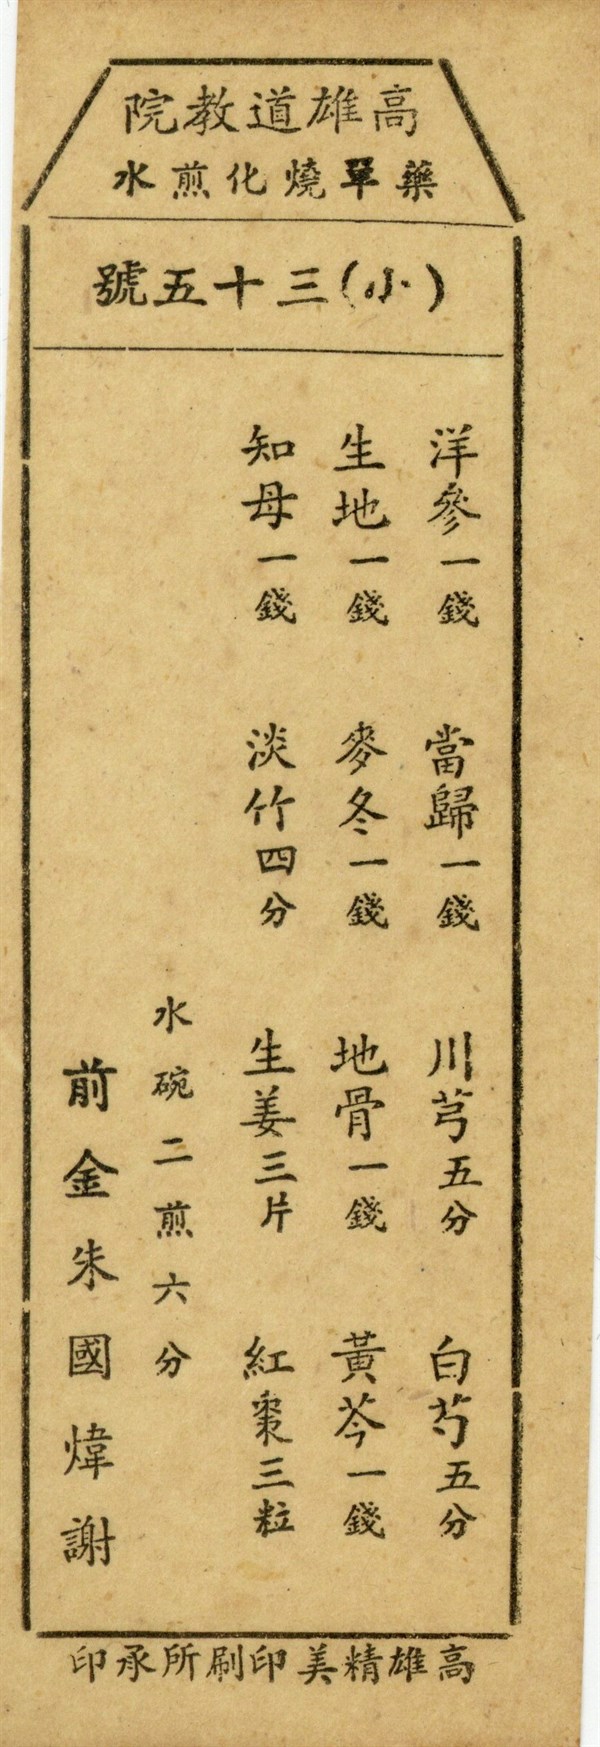 高雄道教院
藥單燒化煎水
(小)三十五號
洋參一錢 當歸一錢 川芎五分 白芍五分
生地一錢 麥冬一錢 地骨一錢 黃芩一錢
知母一錢 淡竹四分 生姜三片 紅棗三粒
水碗二煎六分
前金朱國煒謝
高雄精美印刷所承印